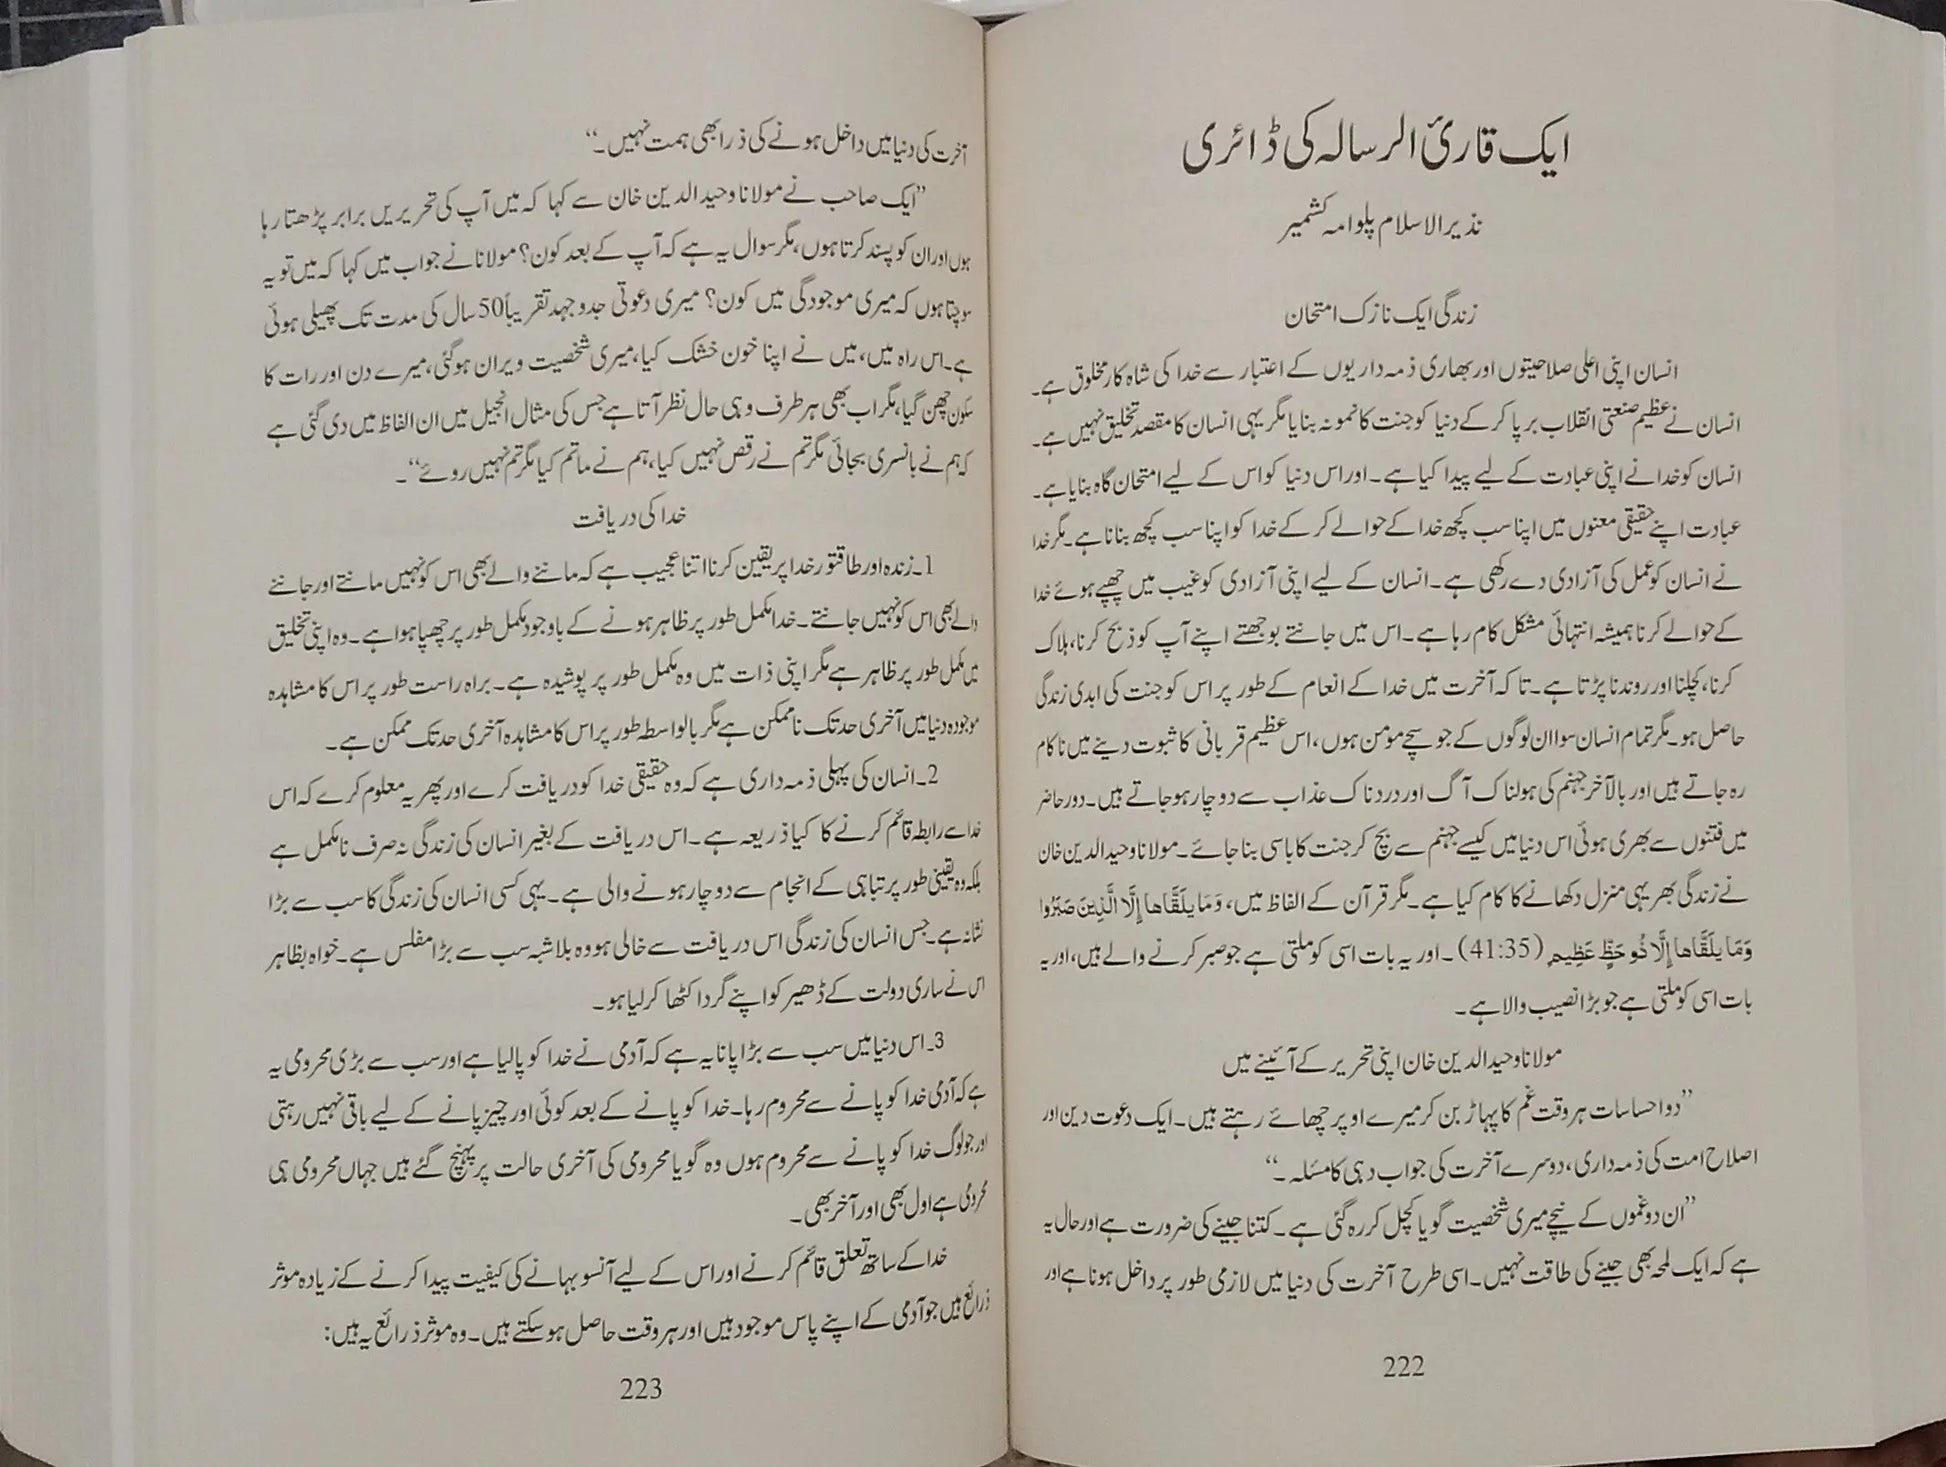 ایک قاریٔ الرسالہ کی ڈائری
نذیر الاسلام پلوامہ کشمیر
زندگی ایک نازک امتحان
انسان اپنی اعلی صلاحیتوں اور بھاری ذمہ داریوں کے اعتبار سے خدا کی شاہ کار مخلوق ہے۔
انسان نے عظیم صنعتی انقلاب برپا کر کے دنیا کو جنت کا نمونہ بنایا مگر یہی انسان کا مقصد تخلیق نہیں ہے۔
انسان کو خدا نے اپنی عبادت کے لیے پیدا کیا ہے۔ اور اس دنیا کو اس کے لیے امتحان گاہ بنایا ہے۔
عبادت اپنے حقیقی معنوں میں اپنا سب کچھ خدا کے حوالے کر کے خدا کو اپنا سب کچھ بنانا ہے۔ مگر خدا
نے انسان کو عمل کی آزادی دے رکھی ہے۔ انسان کے لیے اپنی آزادی کو غیب میں چھپے ہوئے خدا
کے حوالے کرنا ہمیشہ انتہائی مشکل کام رہا ہے۔ اس میں جانتے بوجھتے اپنے آپ کو ذبح کرنا، ہلاک
کرنا، کچلنا اور روندنا پڑتا ہے۔ تاکہ آخرت میں خدا کے انعام کے طور پر اس کو جنت کی ابدی زندگی
حاصل ہو۔ مگر تمام انسان سوا ان لوگوں کے جو سچے مومن ہوں، اس عظیم قربانی کا ثبوت دینے میں ناکام
رہ جاتے ہیں اور بالآخر جہنم کی ہولناک آگ اور دردناک عذاب سے دوچار ہو جاتے ہیں۔ دور حاضر
میں فتنوں سے بھری ہوئی اس دنیا میں کیسے جہنم سے بچ کر جنت کا باسی بنا جائے۔ مولانا وحید الدین خان
نے زندگی بھر یہی منزل دکھانے کا کام کیا ہے۔ مگر قرآن کے الفاظ میں، وَمَا يلَقَّاها إِلَّا الَّذِينَ صَبَرُوا
وَمَا يلَقَّاها إِلَّا ذُو حَظٍّ عَظِيمٍ (41:35)۔ اور یہ بات اسی کو ملتی ہے جو صبر کرنے والے ہیں، اور یہ
بات اسی کو ملتی ہے جو بڑا نصیب والا ہے۔
مولانا وحید الدین خان اپنی تحریر کے آئینے میں
”دو احساسات ہر وقت غم کا پہاڑ بن کر میرے اوپر چھائے رہتے ہیں۔ ایک دعوت دین اور
اصلاح امت کی ذمہ داری، دوسرے آخرت کی جواب دہی کا مسئلہ۔“
”ان دو غموں کے نیچے میری شخصیت گویا کچل کر رہ گئی ہے۔ کتنا جینے کی ضرورت ہے اور حال یہ
ہے کہ ایک لمحہ بھی جینے کی طاقت نہیں۔ اسی طرح آخرت کی دنیا میں لازمی طور پر داخل ہونا ہے اور
222
آخرت کی دنیا میں داخل ہونے کی ذرا بھی ہمت نہیں۔“
”ایک صاحب نے مولانا وحید الدین خان سے کہا کہ میں آپ کی تحریریں برابر پڑھتا رہا
ہوں اور ان کو پسند کرتا ہوں، مگر سوال یہ ہے کہ آپ کے بعد کون؟ مولانا نے جواب میں کہا کہ میں تو یہ
سوچتا ہوں کہ میری موجودگی میں کون؟ میری دعوتی جدوجہد تقریباً 50 سال کی مدت تک پھیلی ہوئی
ہے۔ اس راہ میں، میں نے اپنا خون خشک کیا، میری شخصیت ویران ہوگئی، میرے دن اور رات کا
سکون چھن گیا، مگر اب بھی ہر طرف وہی حال نظر آتا ہے جس کی مثال انجیل میں ان الفاظ میں دی گئی ہے
کہ ہم نے بانسری بجائی مگر تم نے رقص نہیں کیا، ہم نے ماتم کیا مگر تم نہیں روئے“۔
خدا کی دریافت
1۔ زندہ اور طاقتور خدا پر یقین کرنا اتنا عجیب ہے کہ ماننے والے بھی اس کو نہیں مانتے اور جاننے
والے بھی اس کو نہیں جانتے۔ خدا مکمل طور پر ظاہر ہونے کے باوجود مکمل طور پر چھپا ہوا ہے۔ وہ اپنی تخلیق
میں مکمل طور پر ظاہر ہے مگر اپنی ذات میں وہ مکمل طور پر پوشیدہ ہے۔ براہ راست طور پر اس کا مشاہدہ
موجودہ دنیا میں آخری حد تک ناممکن ہے مگر بالواسطہ طور پر اس کا مشاہدہ آخری حد تک ممکن ہے۔
2۔ انسان کی پہلی ذمہ داری ہے کہ وہ حقیقی خدا کو دریافت کرے اور پھر یہ معلوم کرے کہ اس
خدا سے رابطہ قائم کرنے کا کیا ذریعہ ہے۔ اس دریافت کے بغیر انسان کی زندگی نہ صرف نامکمل ہے
بلکہ وہ یقینی طور پر تباہی کے انجام سے دوچار ہونے والی ہے۔ یہی کسی انسان کی زندگی کا سب سے بڑا
نشانہ ہے۔ جس انسان کی زندگی اس دریافت سے خالی ہو وہ بلاشبہ سب سے بڑا مفلس ہے۔ خواہ بظاہر
اس نے ساری دولت کے ڈھیر کو اپنے گرد اکٹھا کر لیا ہو۔
3۔ اس دنیا میں سب سے بڑا پانا یہ ہے کہ آدمی نے خدا کو پالیا ہے اور سب سے بڑی محرومی یہ
ہے کہ آدمی خدا کو پانے سے محروم رہا۔ خدا کو پانے کے بعد کوئی اور چیز پانے کے لیے باقی نہیں رہتی
اور جو لوگ خدا کو پانے سے محروم ہوں وہ گویا محرومی کی آخری حالت پر پہنچ گئے ہیں جہاں محرومی ہی
محرومی ہے اول بھی اور آخر بھی۔
خدا کے ساتھ تعلق قائم کرنے اور اس کے لیے آنسو بہانے کی کیفیت پیدا کرنے کے زیادہ موثر
ذرائع ہیں جو آدمی کے اپنے پاس موجود ہیں اور ہر وقت حاصل ہو سکتے ہیں۔ وہ موثر ذرائع یہ ہیں:
223